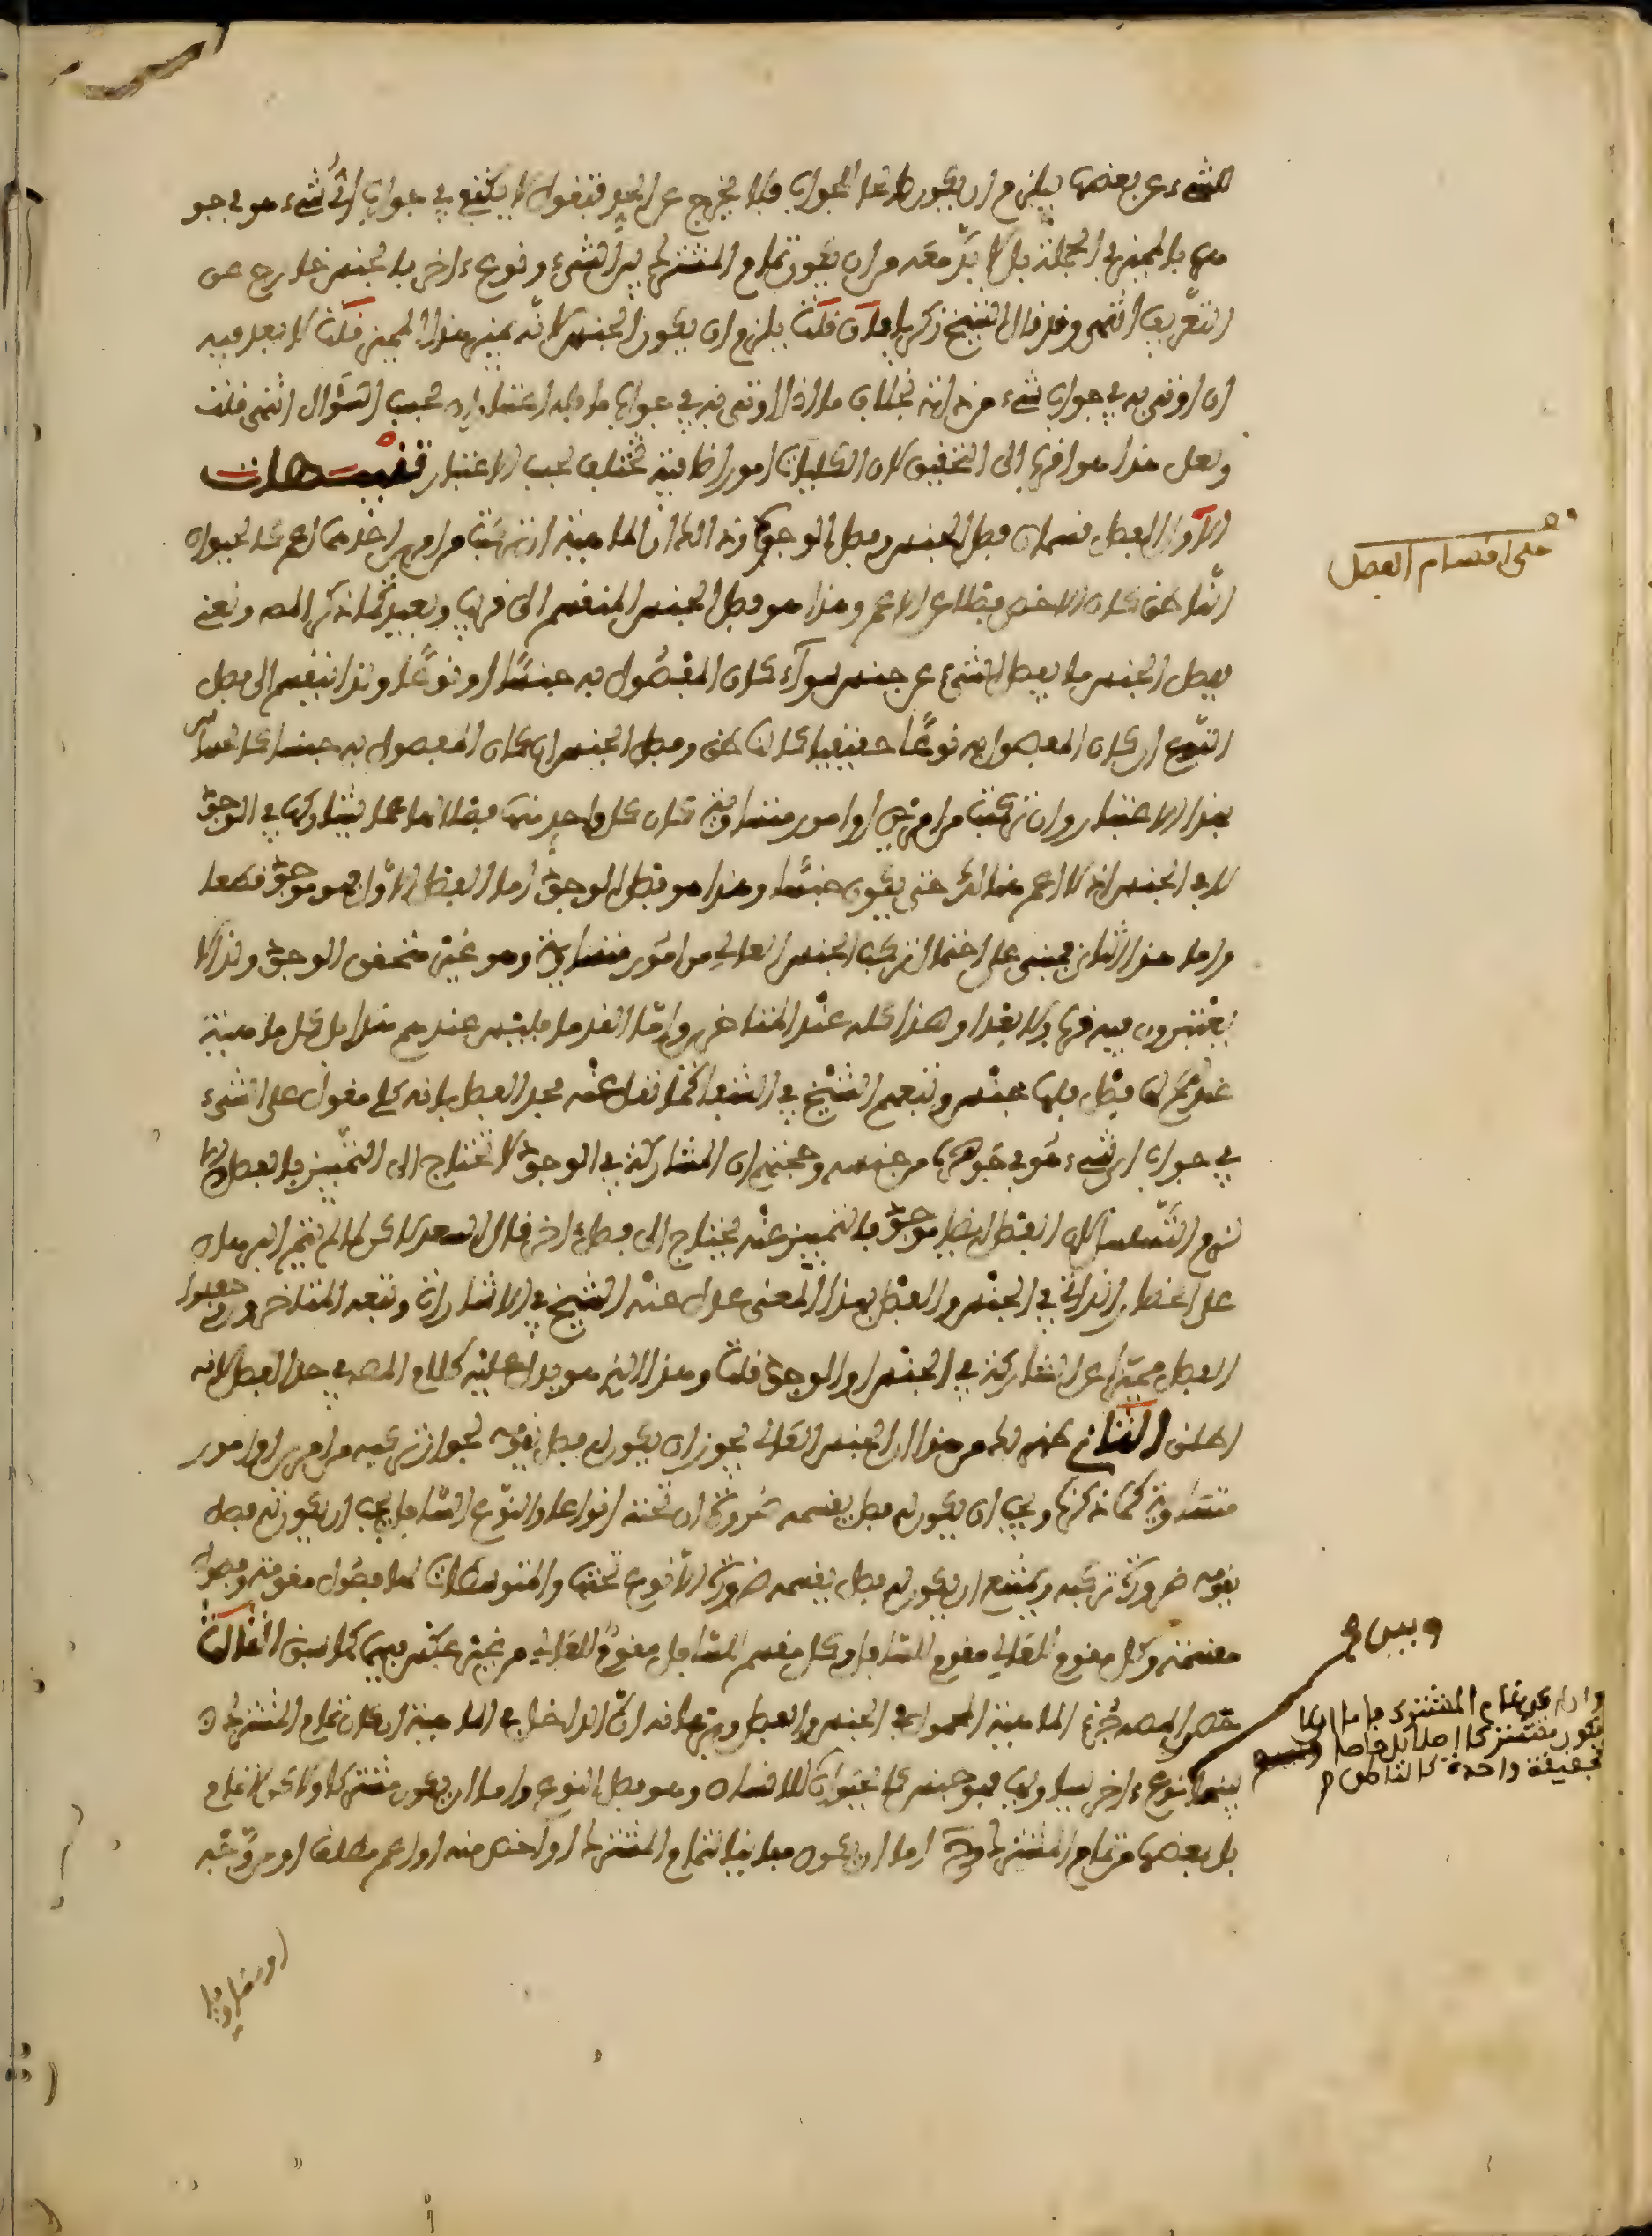 للشيء عن بعضها فيلزم ان يكون صالحا للجواب فلا يخرج عن الحد فنقول لا يكتفى في جواب اي شيء هو في جو
هره بالمميز في الجملة بل لا بد معه من ان يكون تمام المشترك بين الشيء ونوع ءاخر بالجنس خارج عن
التعريف انتهى وقد قال الشيخ زكرياء فان قلت يلزم ان يكون الجنس لانه يميز هذا المميز قلت لا بعد فيه
ان اوتي به في جواب شيء من انه بخلاف ما اذا اوتي به في جواب ما فله اعتباران بحسب السؤال انتهى قلت
ولعل هذا هو اقرب الى التحقيق لان الكليات امور اضافية تختلف بحسب الاعتبار تنبيهات
الاول الفصل قسمان فصل الجنس وفصل الوجود وذالك ان الماهية ان تركبت من امرين احدهما اعم كالحيوان
الناطق كان الاخص فصلا عن الاعم وهذا هو فصل الجنس المنقسم الى قريب وبعيد كما ذكر المص ونعني
بفصل الجنس ما يفصل الشيء عن جنس سواء كان المفصول به جنسا او نوعا ولذا ينقسم الى فصل
النوع ان كان المفصول به نوعا حقيقيا كالناطق وفصل الجنس ان كان المفصول به جنسا كالحساس
بهذا الاعتبار وان تركبت من امرين او امور متساوية كان كل واحد منها فصلا لها عما يشاركها في الوجود
لا في الجنس اذ لا اعم هنالك حتى يكون جنسا وهذا هو فصل الوجود اما الفصل الاول فهو موجود قطعا
واما هذا الثاني فمبني على احتمال تركب الجنس العالي من امور متساوية وهو غير متحقق الوجود ولذا لا
يعتبرون فيه قربا ولا بعدا وهذا كله عند المتاخرين واما القدما فليس عندهم هذا بل كل ماهية
عندهم لها فصل فلها جنس وتبعهم الشيخ في الشفا كما نقل عنه فحد الفصل بانه كلي مقول على الشيء
في جواب اي شيء هو في جوهره من جنسه وحجتهم ان المشاركة في الوجود لا تحتاج الى التمييز بالفصل والا
لزم التسلسل لان الفصل ايضا موجود فالتمييز عنه يحتاج الى فصل ءاخر قال السعد لاكن لما لم يتم البرهان
على انحصار الذاتي في الجنس والفصل بهذا المعنى عدل عنه الشيخ في الاشارات وتبعه المتاخرون فجعلوا
الفصل مميزا عن المشاركة في الجنس او الوجود قلت وهذا الذي هو يدل عليه كلام المص في حد الفصل لانه
اطلق الثاني ظهر لك من هذا ان الجنس العالي يجوز ان يكون له فصل يقومه لجواز تركبه من امرين او امور
متساوية كما ذكرنا ويجب ان يكون له فصل يقسمه ضرورة ان تحته انواعا والنوع السافل يجب ان يكون له فصل
يقومه ضرورة تركبه ويمتنع ان يكون له فصل يقسمه ضرورة الا نوع تحته والمتوسطات لها فصول مقومة وفصول
مقسمة وكل مقوم للعالي مقوم للسافل وكل مقسم للسافل مقسم للعالي من غير عكس فيهما كما سبق الثالث
حصر المص جزء الماهية المحمول في الجنس والفصل وبرهانه ان الداخل في الماهية ان كان تمام المشترك
بينها نوع ءاخر يساويها فهو جنس كالحيوان للانسان وهو فصل النوع واما ان يكون مشتركا ولاكن لا تمام
بل بعضها من تمام المشترك وح اما ان يكون مباينا لتمام المشترك او اخص منه او اعم مطلقا او من وجه
او مساويا
على اقسام الفصل
وبين
وان لم يكن تمام المشترك فاما الا
يكون مشتركا اصلا بل خاصا
بحقيقة واحدة كالناطق